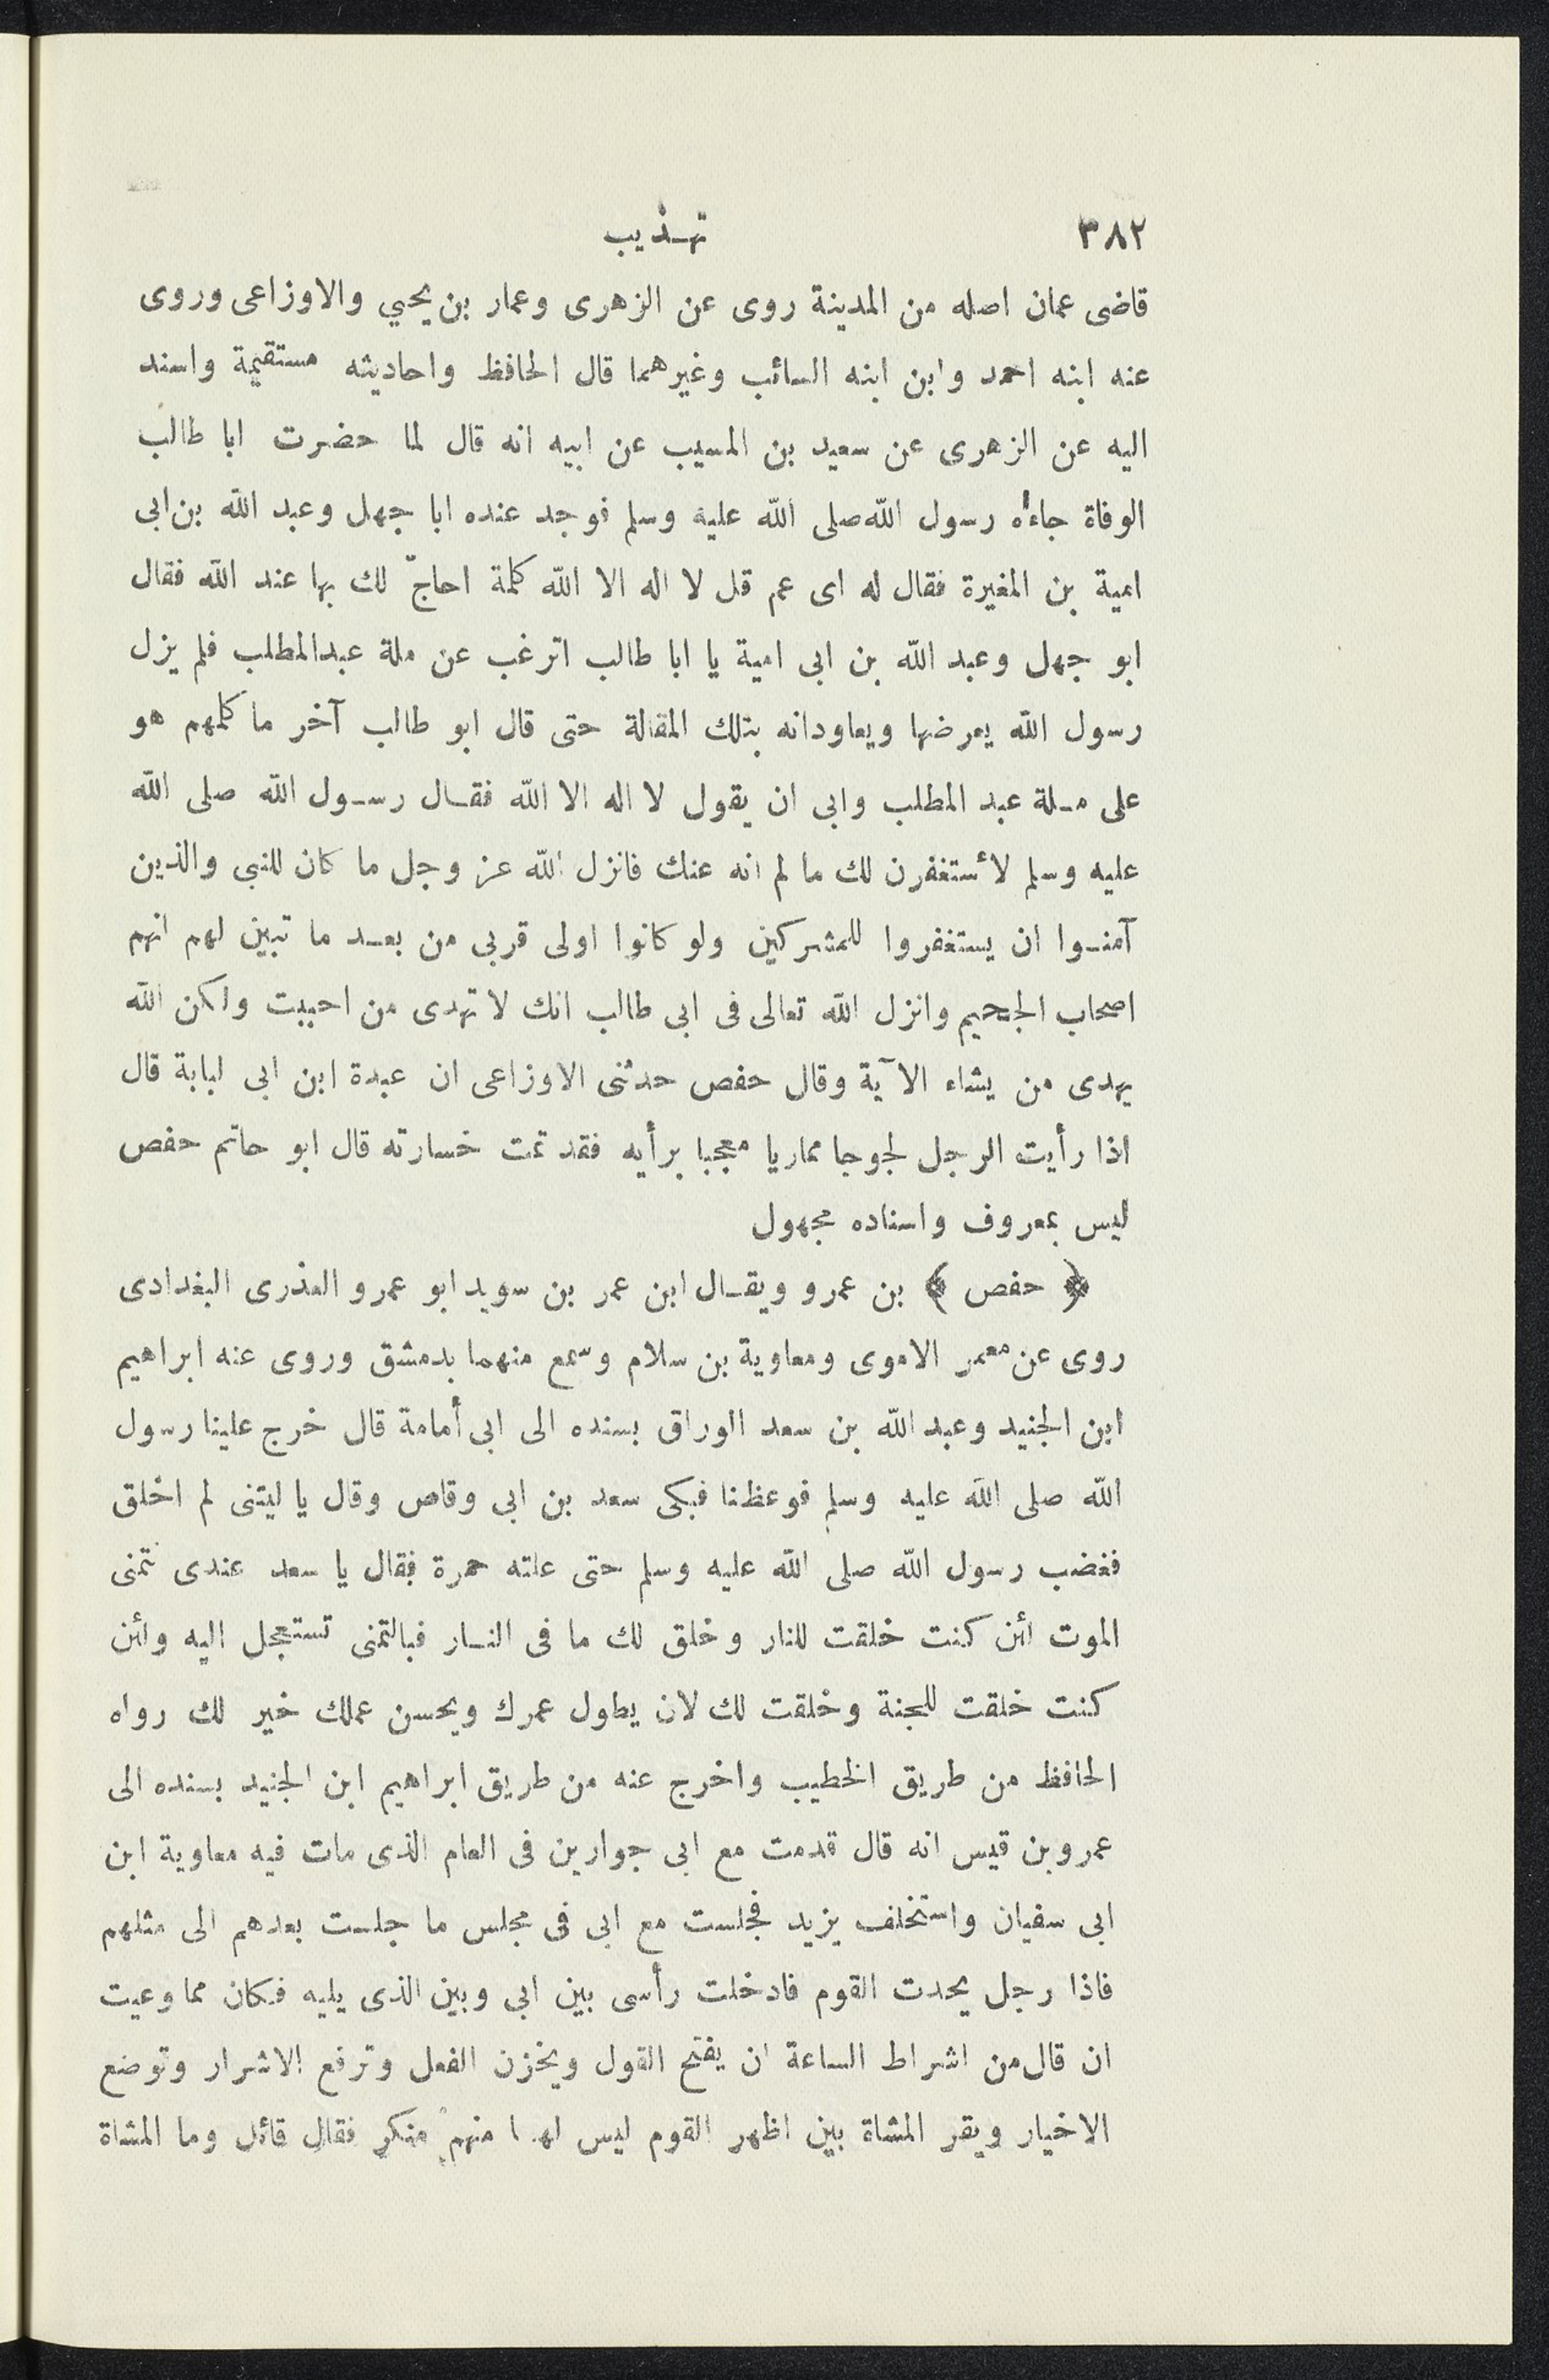 ٣٨٢ تهـذيب
قاضى عمان اصله من المدينة روى عن الزهرى وعمار بن يحيي والاوزاعى وروى
عنه ابنه احمد وابن ابنه السائب وغيرهما قال الحافظ واحاديثه مستقيمة واسند
اليه عن الزهرى عن سعيد بن المسيب عن ابيه انه قال لما حضرت ابا طالب
الوفاة جاءه رسول الله صلى الله عليه وسلم فوجد عنده ابا جهل وعبد الله بن ابى
امية بن المغيرة فقال له اى عم قل لا اله الا الله كلمة احاجّ لك بها عند الله فقال
ابو جهل وعبد الله بن ابى امية يا ابا طالب اترغب عن ملة عبدالمطلب فلم يزل
رسول الله يعرضها ويعاودانه بتلك المقالة حتى قال ابو طالب آخر ما كلمهم هو
على مـلة عبد المطلب وابى ان يقول لا اله الا الله فقـال رسـول الله صلى الله
عليه وسلم لأستغفرن لك ما لم انه عنك فانزل الله عز وجل ما كان للنبى والذين
آمنـوا ان يستغفروا للمشركين ولو كانوا اولى قربى من بعـد ما تبين لهم انهم
اصحاب الجحيم وانزل الله تعالى فى ابى طالب انك لا تهدى من احببت ولكن الله
يهدى من يشاء الآية وقال حفص حدثنى الاوزاعى ان عبدة ابن ابى لبابة قال
اذا رأيت الرجل لجوجا مماريا معجبا برأيه فقد تمت خسارته قال ابو حاتم حفص
ليس بمعروف واسناده مجهول
﴿ حفص ﴾ بن عمرو ويقـال ابن عمر بن سويد ابو عمرو العذرى البغدادى
روى عن معمر الاموى ومعاوية بن سلام وسمع منهما بدمشق وروى عنه ابراهيم
ابن الجنيد وعبد الله بن سعد الوراق بسنده الى ابى أمامة قال خرج علينا رسول
الله صلى الله عليه وسلم فوعظنا فبكى سعد بن ابى وقاص وقال يا ليتنى لم اخلق
فغضب رسول الله صلى الله عليه وسلم حتى علته حمرة فقال يا سعد عندى تتمنى
الموت لئن كنت خلقت للنار وخلق لك ما فى النـار فبالتمنى تستعجل اليه ولئن
كنت خلقت للجنة وخلقت لك لان يطول عمرك ويحسن عملك خير لك رواه
الحافظ من طريق الخطيب واخرج عنه من طريق ابراهيم ابن الجنيد بسنده الى
عمرو بن قيس انه قال قدمت مع ابى جوارين فى العام الذى مات فيه معاوية ابن
ابى سفيان واستخلف يزيد فجلست مع ابى فى مجلس ما جلست بعدهم الى مثلهم
فاذا رجل يحدث القوم فادخلت رأسى بين ابى وبين الذى يليه فكان مما وعيت
ان قال من اشراط الساعة ان يفتح القول ويخزن الفعل وترفع الاشرار وتوضع
الاخيار ويقر المشاة بين اظهر القوم ليس لهـا منهم منكر فقال قائل وما المشاة